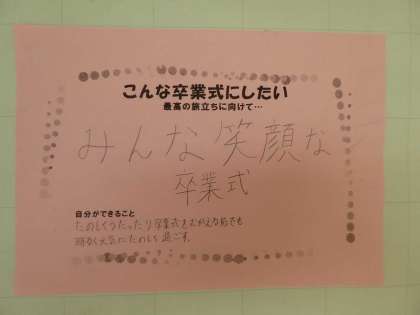 こんな卒業式にしたい
最高の旅立ちに向けて…
みんな笑顔な
卒業式
自分ができること
たのしくうたったり卒業式をむかえる前でも
明るく元気にたのしく過ごす。